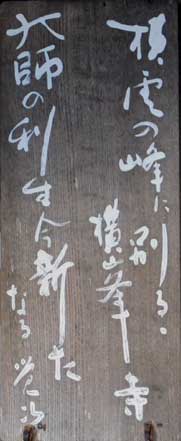 横雲の峰に別るゝ
横峰寺
大師の利生今新た
なる